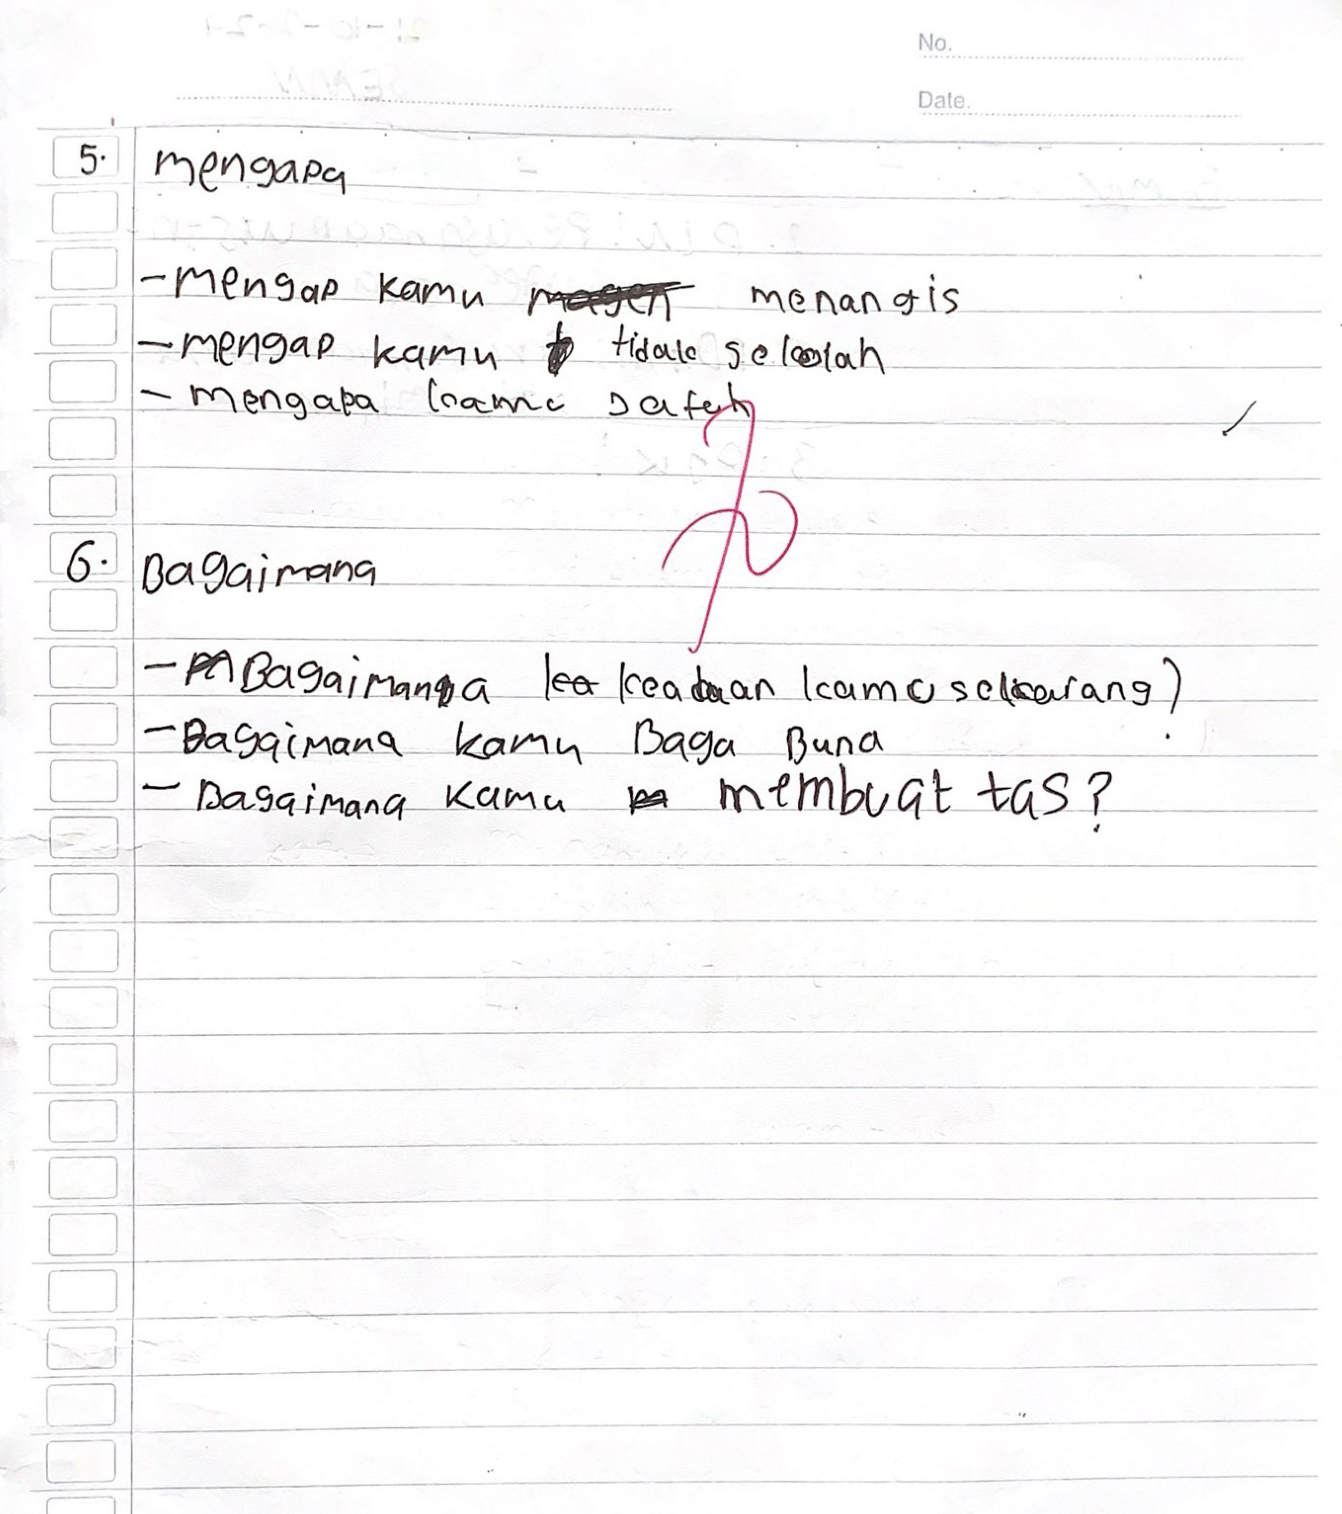 No.
Date.
5. mengapa
- mengap kamu menangis
- mengap kamu tidak sekolah
- mengapa kamu
6. Bagaimana
- Bagaimana keadaan kamu sekarang?
- Bagaimana kamu Baga Buna
- Bagaimana kamu membuat tas?